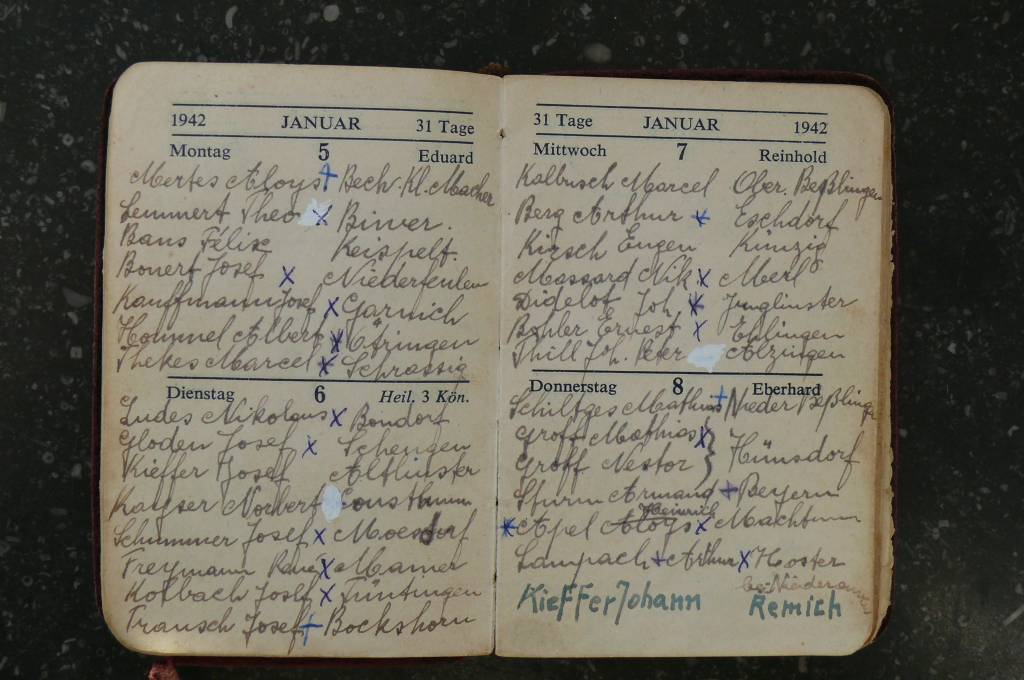 1942 JANUAR 31 Tage
Montag 5 Eduard
Mertes Aloys + Bech-Kl. Macher
Lemmert Theo x Biwer.
Bans Félix Keispelt.
Bonert Josef x Niederfeulen
Kauffmann Josef x Garnich
Hommel Albert x Ötringen
Thekes Marcel x Schrassig
Dienstag 6 Heil. 3 Kön.
Ludes Nikolaus x Bondorf
Gloden Josef x Schengen
Kieffer Josef Altlinster
Kayser Norbert Consthum
Schummer Josef x Moesdorf
Freymann René x Mamer
Kolbach Josef x Tüntingen
Transch Josef + Bockshorn
31 Tage JANUAR 1942
Mittwoch 7 Reinhold
Kalbusch Marcel Ober. Beßlingen
Berg Arthur x Eschdorf
Kirsch Eugen Künzig
Massard Nik. x Merl
Didelot Joh. x Junglinster
Bohler Ernest x Ehlingen
Thill Joh. Peter Alzingen
Donnerstag 8 Eberhard
Schiltges Mathias + Nieder Beßlingen
Groff Mathias x
Groff Nestor } Hünsdorf
Sturm Armand + Beyern
Heinrich
x Apel Aloys x Machtum
Lampach + Arthur x Hoster
bei Niederanven
Kieffer Johann Remich